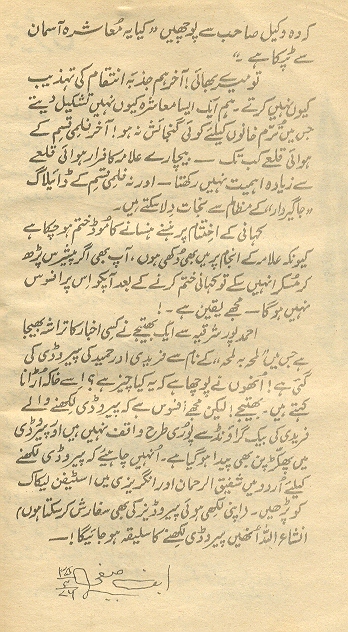 کردہ وکیل صاحب سے پوچھیں "کیا یہ معاشرہ آسمان
سے ٹپکا ہے۔"
تو میرے بھائی! آخر ہم جذبۂ انتقام کی تہذیب
کیوں نہیں کرتے۔ ہم ایک ایسا معاشرہ کیوں نہیں تشکیل دیتے
جس میں ترنم خانوں کیلئے کوئی گنجائش نہ ہو! آخر فلمی قسم کے
ہوائی قلعے کب تک — بیچارے علامہ کا فرار ہوائی قلعے
سے زیادہ اہمیت نہیں رکھتا — اور نہ فلمی قسم کے ڈائیلاگ
"جاگیردار" کے مظالم سے نجات دلا سکتے ہیں۔
کہانی کے اختتام پر ہنسنے ہنسانے کا موڈ ختم ہو چکا ہے
کیونکہ علامہ کے انجام پر میں بھی دکھی ہوں۔ آپ بھی اگر پیشرس پڑھ
کر مسکرا نہیں سکے تو کہانی ختم کرنے کے بعد آپکو اس پر افسوس
نہیں ہوگا — مجھے یقین ہے۔!
احمد پور شرقیہ سے ایک بھتیجے نے کسی اخبار کا تراشہ بھیجا
ہے جس میں "لمحہ بہ لمحہ" کے نام سے فریدی اور حمید کی پیروڈی کی
گئی ہے! انھوں نے پوچھا ہے کہ یہ کیا چیز ہے؟! اسے خاکہ اڑانا
کہتے ہیں۔ بھتیجے! لیکن مجھے افسوس ہے کہ پیروڈی لکھنے والے
فریدی کی بیک گراؤنڈ سے پوری طرح واقف نہیں ہیں اور پیروڈی
میں پھکڑپن بھی پیدا ہو گیا ہے۔ انہیں چاہیے کہ پیروڈی لکھنے
کیلئے اردو میں شفیق الرحمان اور انگریزی میں اسٹیفن لیکاک
کو پڑھیں۔ (اپنی لکھی ہوئی پیروڈیز کی بھی سفارش کر سکتا ہوں)
انشاءاللہ انھیں پیروڈی لکھنے کا سلیقہ ہو جائیگا!—
ابن صفی